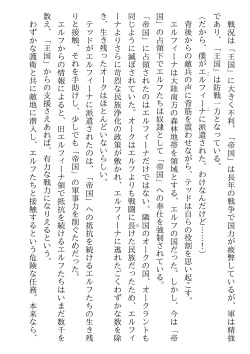 戦況は「王国」に大きく不利。「帝国」は長年の戦争で国力が疲弊しているが、軍は精強
であり、「王国」は防戦一方となっている。
（だから、僕がエルフィーナに派遣された、わけなんだけど……！）
背後からの敵兵の声に背筋を震わせながら、テッドは自らの役割を思い起こす。
エルフィーナは大陸南方の森林地帯を領域とする、エルフの国だった。しかし、今は「帝
国」の占領下でエルフたちは奴隷として「帝国」への奉仕を強制されている。
「帝国」に占領されたのはエルフィーナだけではない。隣国のオークの国、オークラントも
同じように滅ぼされていた。オークはエルフよりも戦闘に長けた民族だったため、エルフィ
ーナよりさらに苛烈な民族浄化の政策が敷かれ、エルフィーナに逃れたごくわずかな数を除
き、生き残ったオークはほとんどいないらしい。
テッドがエルフィーナに派遣されたのは、「帝国」への抵抗を続けるエルフたちの生き残
りと接触、それを手助けし、少しでも「帝国」の軍事力を削ぐためだった。
エルフからの情報によると、旧エルフィーナ領で抵抗を続けるエルフたちはいまだ数千を
数え、「王国」からの支援さえあれば、有力な戦力になりえるという。
わずかな護衛と共に敵地に潜入し、エルフたちと接触するという危険な任務。本来なら、